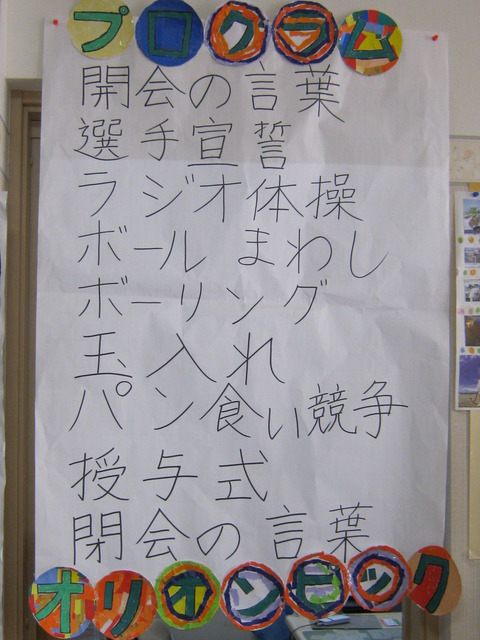 プログラム
開会の言葉
選手宣誓
ラジオ体操
ボール まわし
ボーリング
玉入れ
パン食い競争
授与式
閉会の言葉
オリオンピック